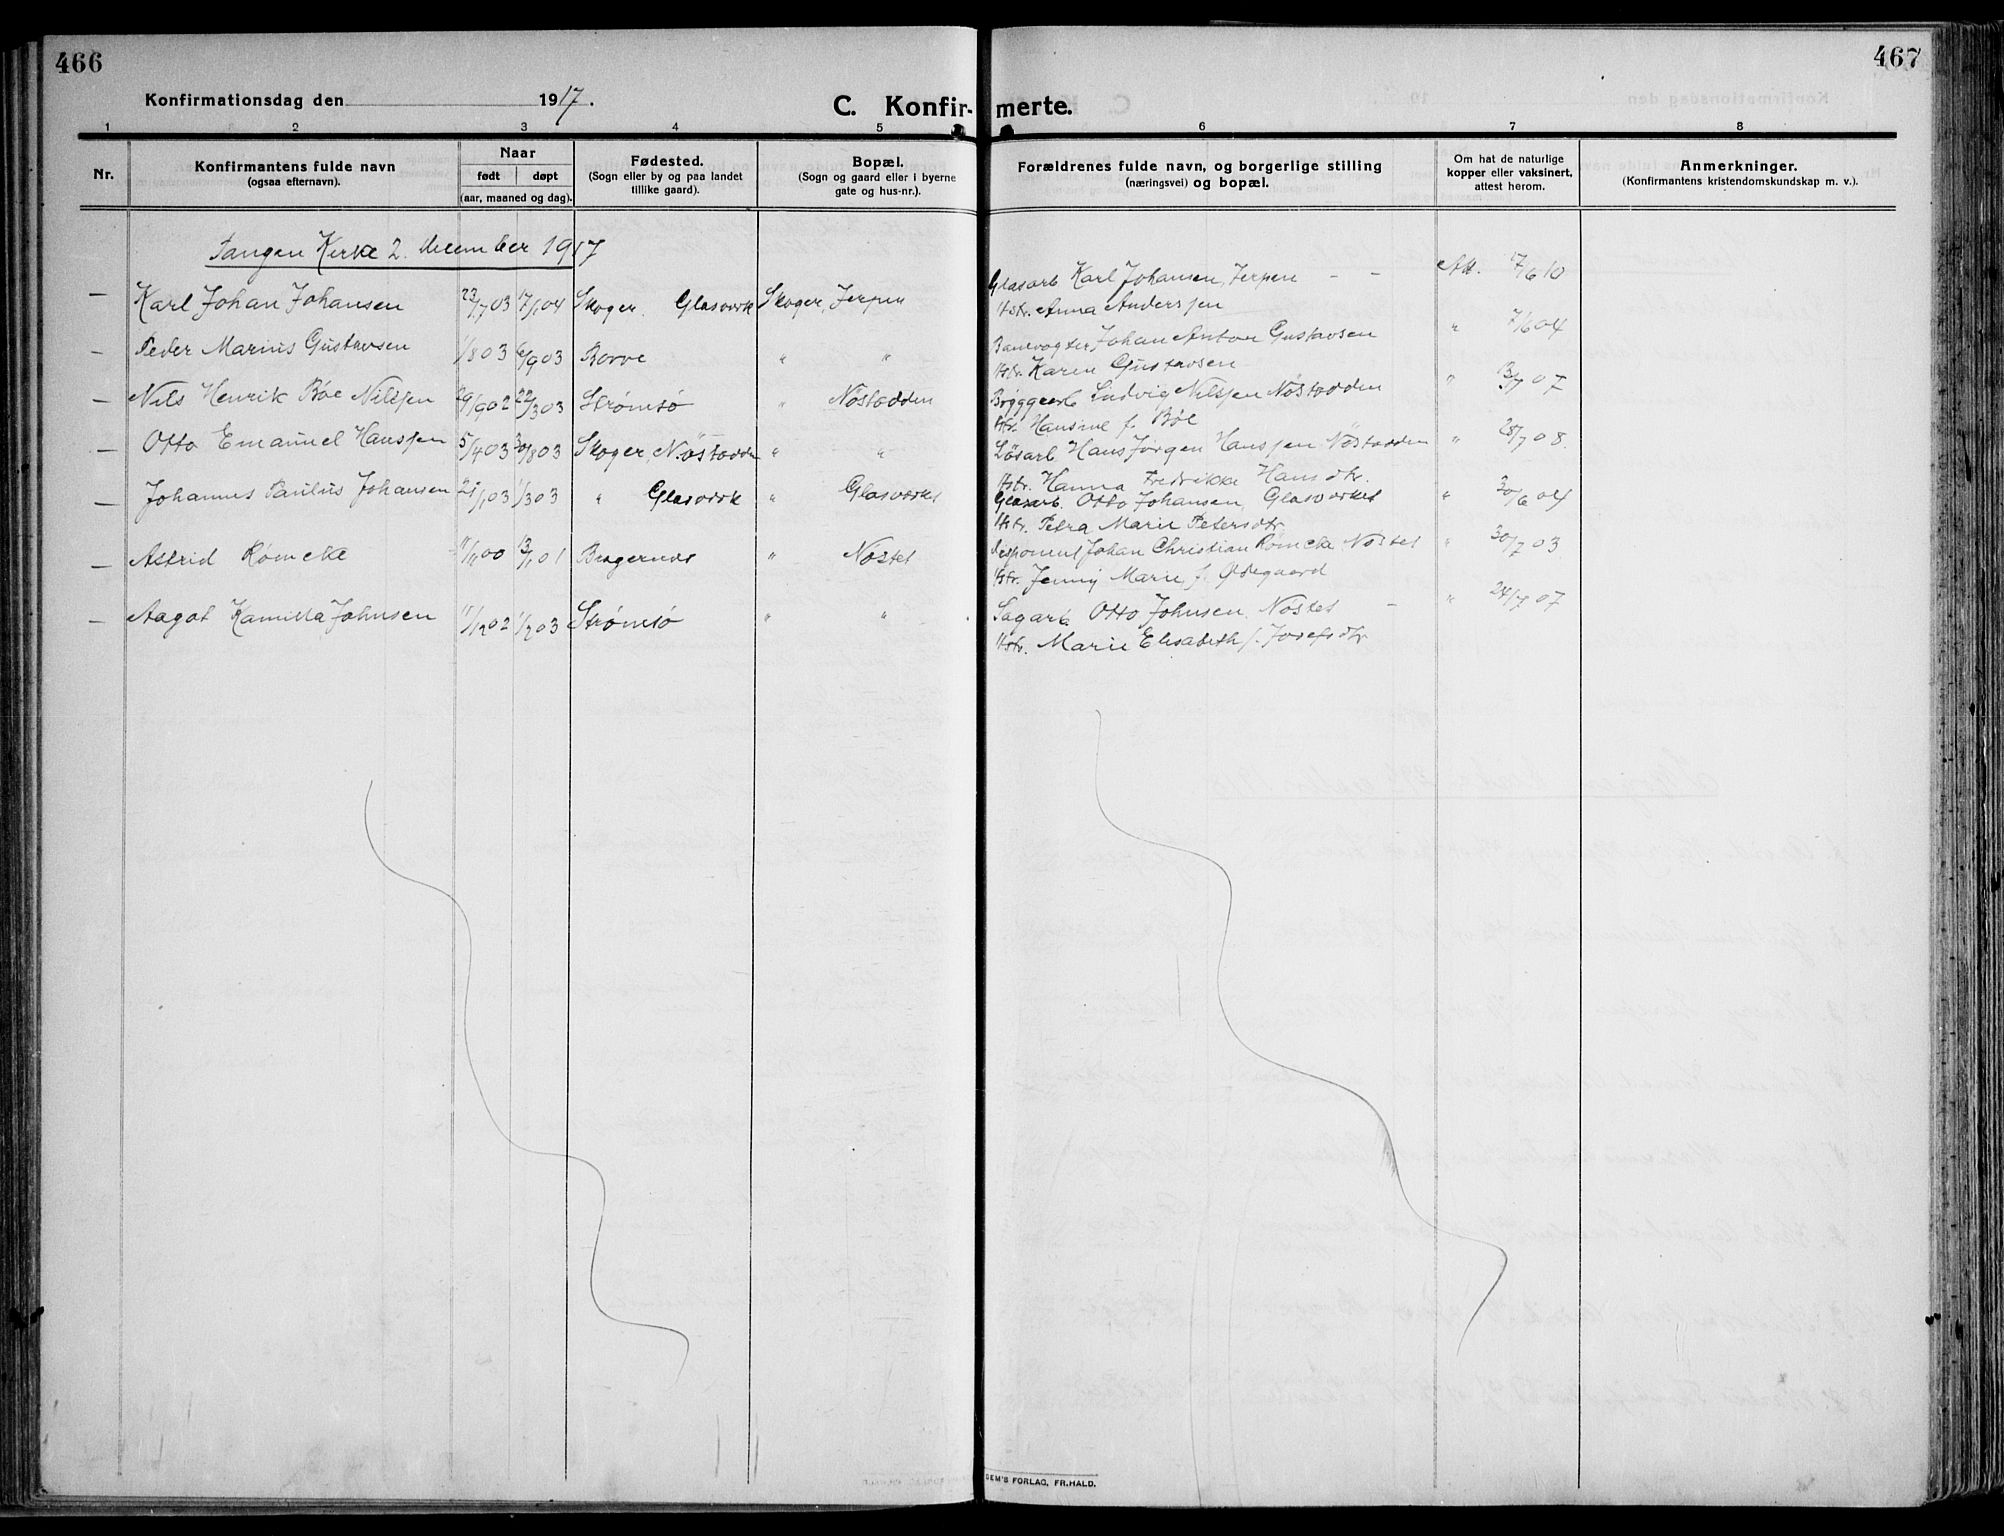 466
467
Konfirmationsdag den 1917.
C. Konfirmerte.
1 2 3 4 5 6 7 8
Nr.
Konfirmantens fulde navn
(ogsaa efternavn).
Naar
født døpt
(aar, maaned og dag).
Fødested.
(Sogn eller by og paa landet
tillike gaard).
Bopæl.
(Sogn og gaard eller i byerne
gate og hus-nr.).
Forældrenes fulde navn, og borgerlige stilling
(næringsvei) og bopæl.
Om hat de naturlige
kopper eller vaksinert,
attest herom.
Anmerkninger.
(Konfirmantens kristendomskundskap m. v.).
Tangen Kirke 2. december 1917
— Karl Johan Johansen 23/7 03 17/1 04 Skoger Glasverk Skoger, Jerpen Glasarb Karl Johansen, Jerpen - - Att. 17/6 10
Hstr. Anna Anderssen
— Peder Marius Gustavsen 1/8 03 6/9 03 Borre " " Banevogter Johan Anton Gustavsen " 7/6 04
Hstr. Karen Gustavsen
— Nils Henrik Bøe Nilssen 29/9 02 22/3 03 Strømsø " Nøstodden Ludvig Nilssen Nøstodden " 13/7 07
Hstr. Hansine f. Bøe
— Otto Emanuel Hanssen 5/4 03 30/8 03 Skoger, Nøstodden " " Løsarb. Hans Jørgen Hanssen Nøstodden " 28/7 08.
Hstr. Hanna Fredrikke Hansdtr.
— Johannes Paulus Johansen 21/1 03 1/3 03 " Glasverk " Glasverket Glasarb. Otto Johansen, Glasverket " 30/6 04
Hstr. Petra Marie Petersdtr.
— Astrid Rømcke 13/1 01 Bragernes " Nøstet Disponent Johan Christian Rømcke, Nøstet " 30/7 03
Hstr. Jenny Marie f. Ødegaard
— Aagot Kamilla Johnsen 11/12 02 1/2 03 Strømsø " " Sagarb. Otto Johnsen, Nøstet - " 24/7 07
Hstr. Marie Elisabeth f. Josefsdtr
DEM'S FORLAG, FR. HALD.